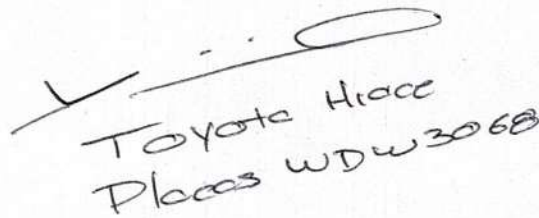 Toyota Hiace
Placas WDW3068